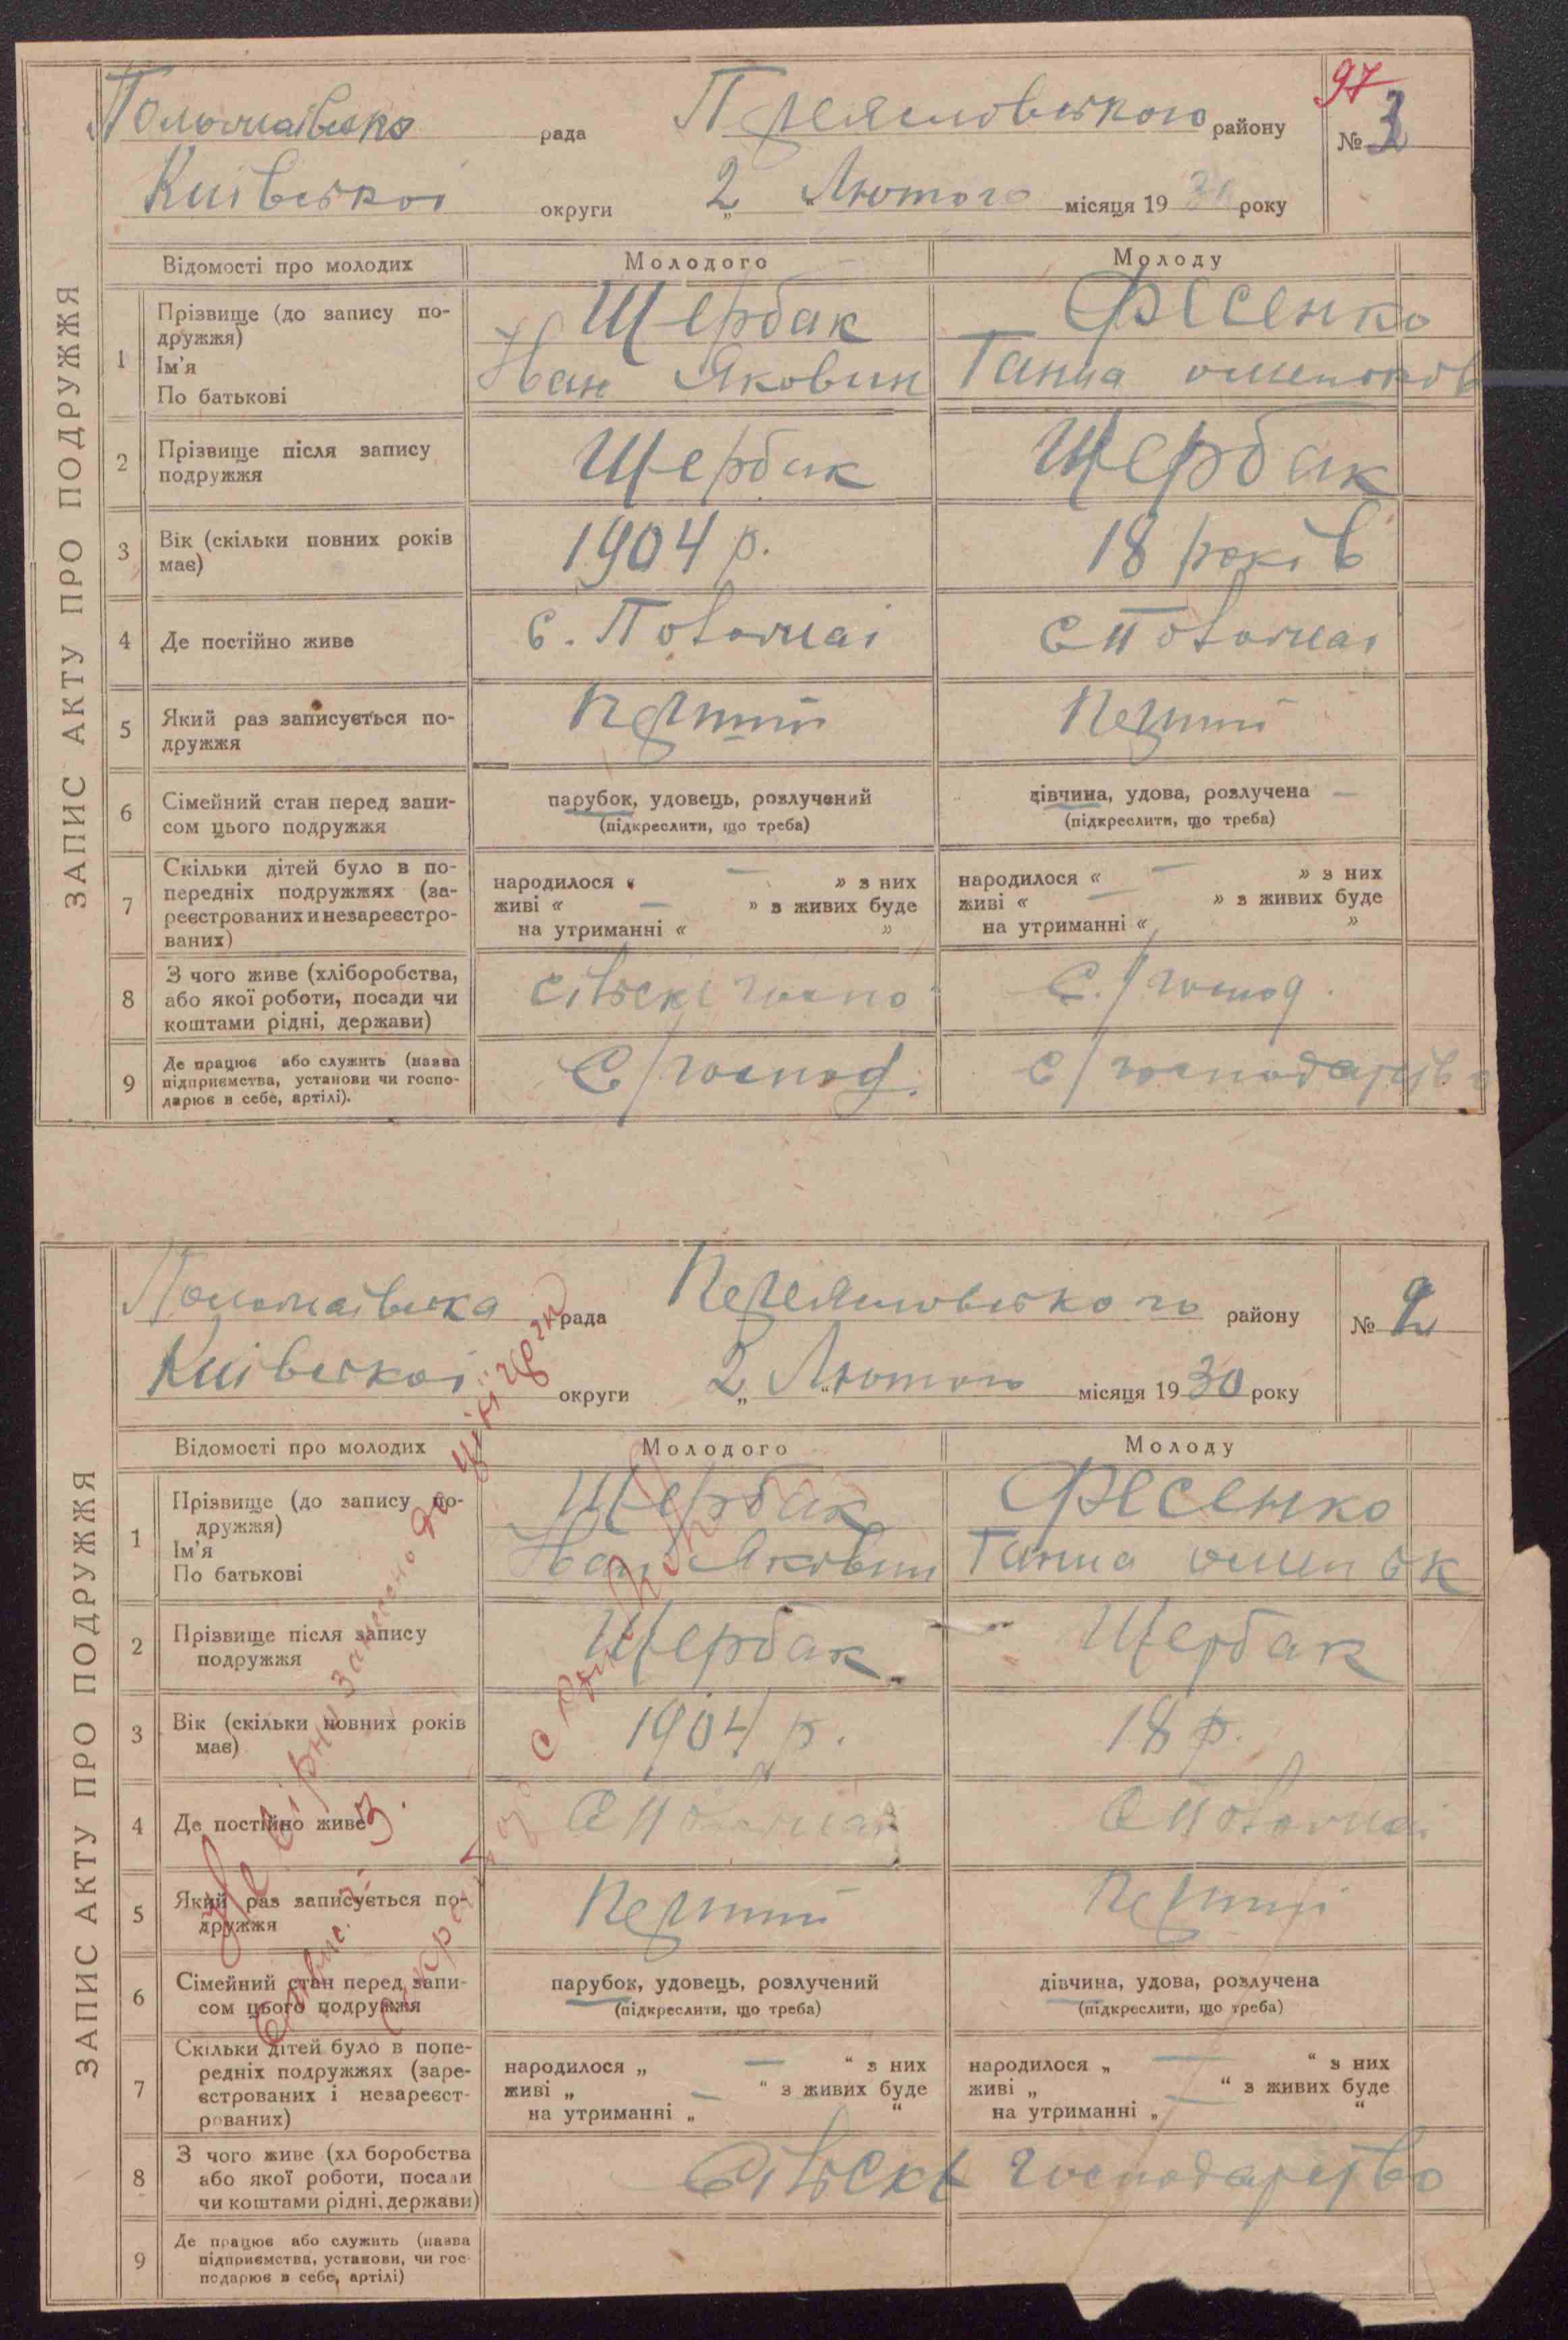 97
рада Переяславського району № 3
Київської округи 2 „ Лютого місяця 19 30 року
ЗАПИС АКТУ ПРО ПОДРУЖЖЯ
Відомості про молодих Молодого Молоду
1 Прізвище (до запису по-
дружжя)
Ім'я
По батькові
Щербак Фесенко
Іван Якович Ганна
2 Прізвище після запису
подружжя
Щербак Щербак
3 Вік (скільки повних років
має)
1904 р. 18 років
4 Де постійно живе
5 Який раз записується по-
дружжя
Перший Перший
6 Сімейний стан перед запи-
сом цього подружжя
парубок, удовець, розлучений
(підкреслити, що треба)
дівчина, удова, розлучена —
(підкреслити, що треба)
7 Скільки дітей було в по-
передніх подружжях (за-
реєстрованих и незареєстро-
ваних)
народилося « — » з них
живі « — » з живих буде
на утриманні « »
народилося « — » з них
живі « — » з живих буде
на утриманні « »
8 З чого живе (хліборобства,
або якої роботи, посади чи
коштами рідні, держави)
сільске госпо С./господ.
9 Де працює або служить (назва
підприємства, установи чи госпо-
дарює в себе, артілі).
С/господ. с/господарство
рада Переяславського району № 2
Київської округи 2 „ Лютого місяця 19 30 року
ЗАПИС АКТУ ПРО ПОДРУЖЖЯ
Відомості про молодих Молодого Молоду
1 Прізвище (до запису по-
дружжя)
Ім'я
По батькові
Щербак Фесенко
Іван Якович Ганна
2 Прізвище після запису
подружжя
Щербак Щербак
3 Вік (скільки повних років
має)
1904 р. 18 р.
4 Де постійно живе
5 Який раз записується по-
дружжя
Перший Перший
6 Сімейний стан перед запи-
сом цього подружжя
парубок, удовець, розлучений
(підкреслити, що треба)
дівчина, удова, розлучена
(підкреслити, що треба)
7 Скільки дітей було в попе-
редніх подружжях (заре-
єстрованих і незареєст-
рованих)
народилося „ — “ з них
живі „ — “ з живих буде
на утриманні „ “
народилося „ — “ з них
живі „ — “ з живих буде
на утриманні „ “
8 З чого живе (хл боробства
або якої роботи, посади
чи коштами рідні, держави)
Сільске господарство
9 Де працює або служить (назва
підприємства, установи, чи гос-
подарює в себе, артілі)